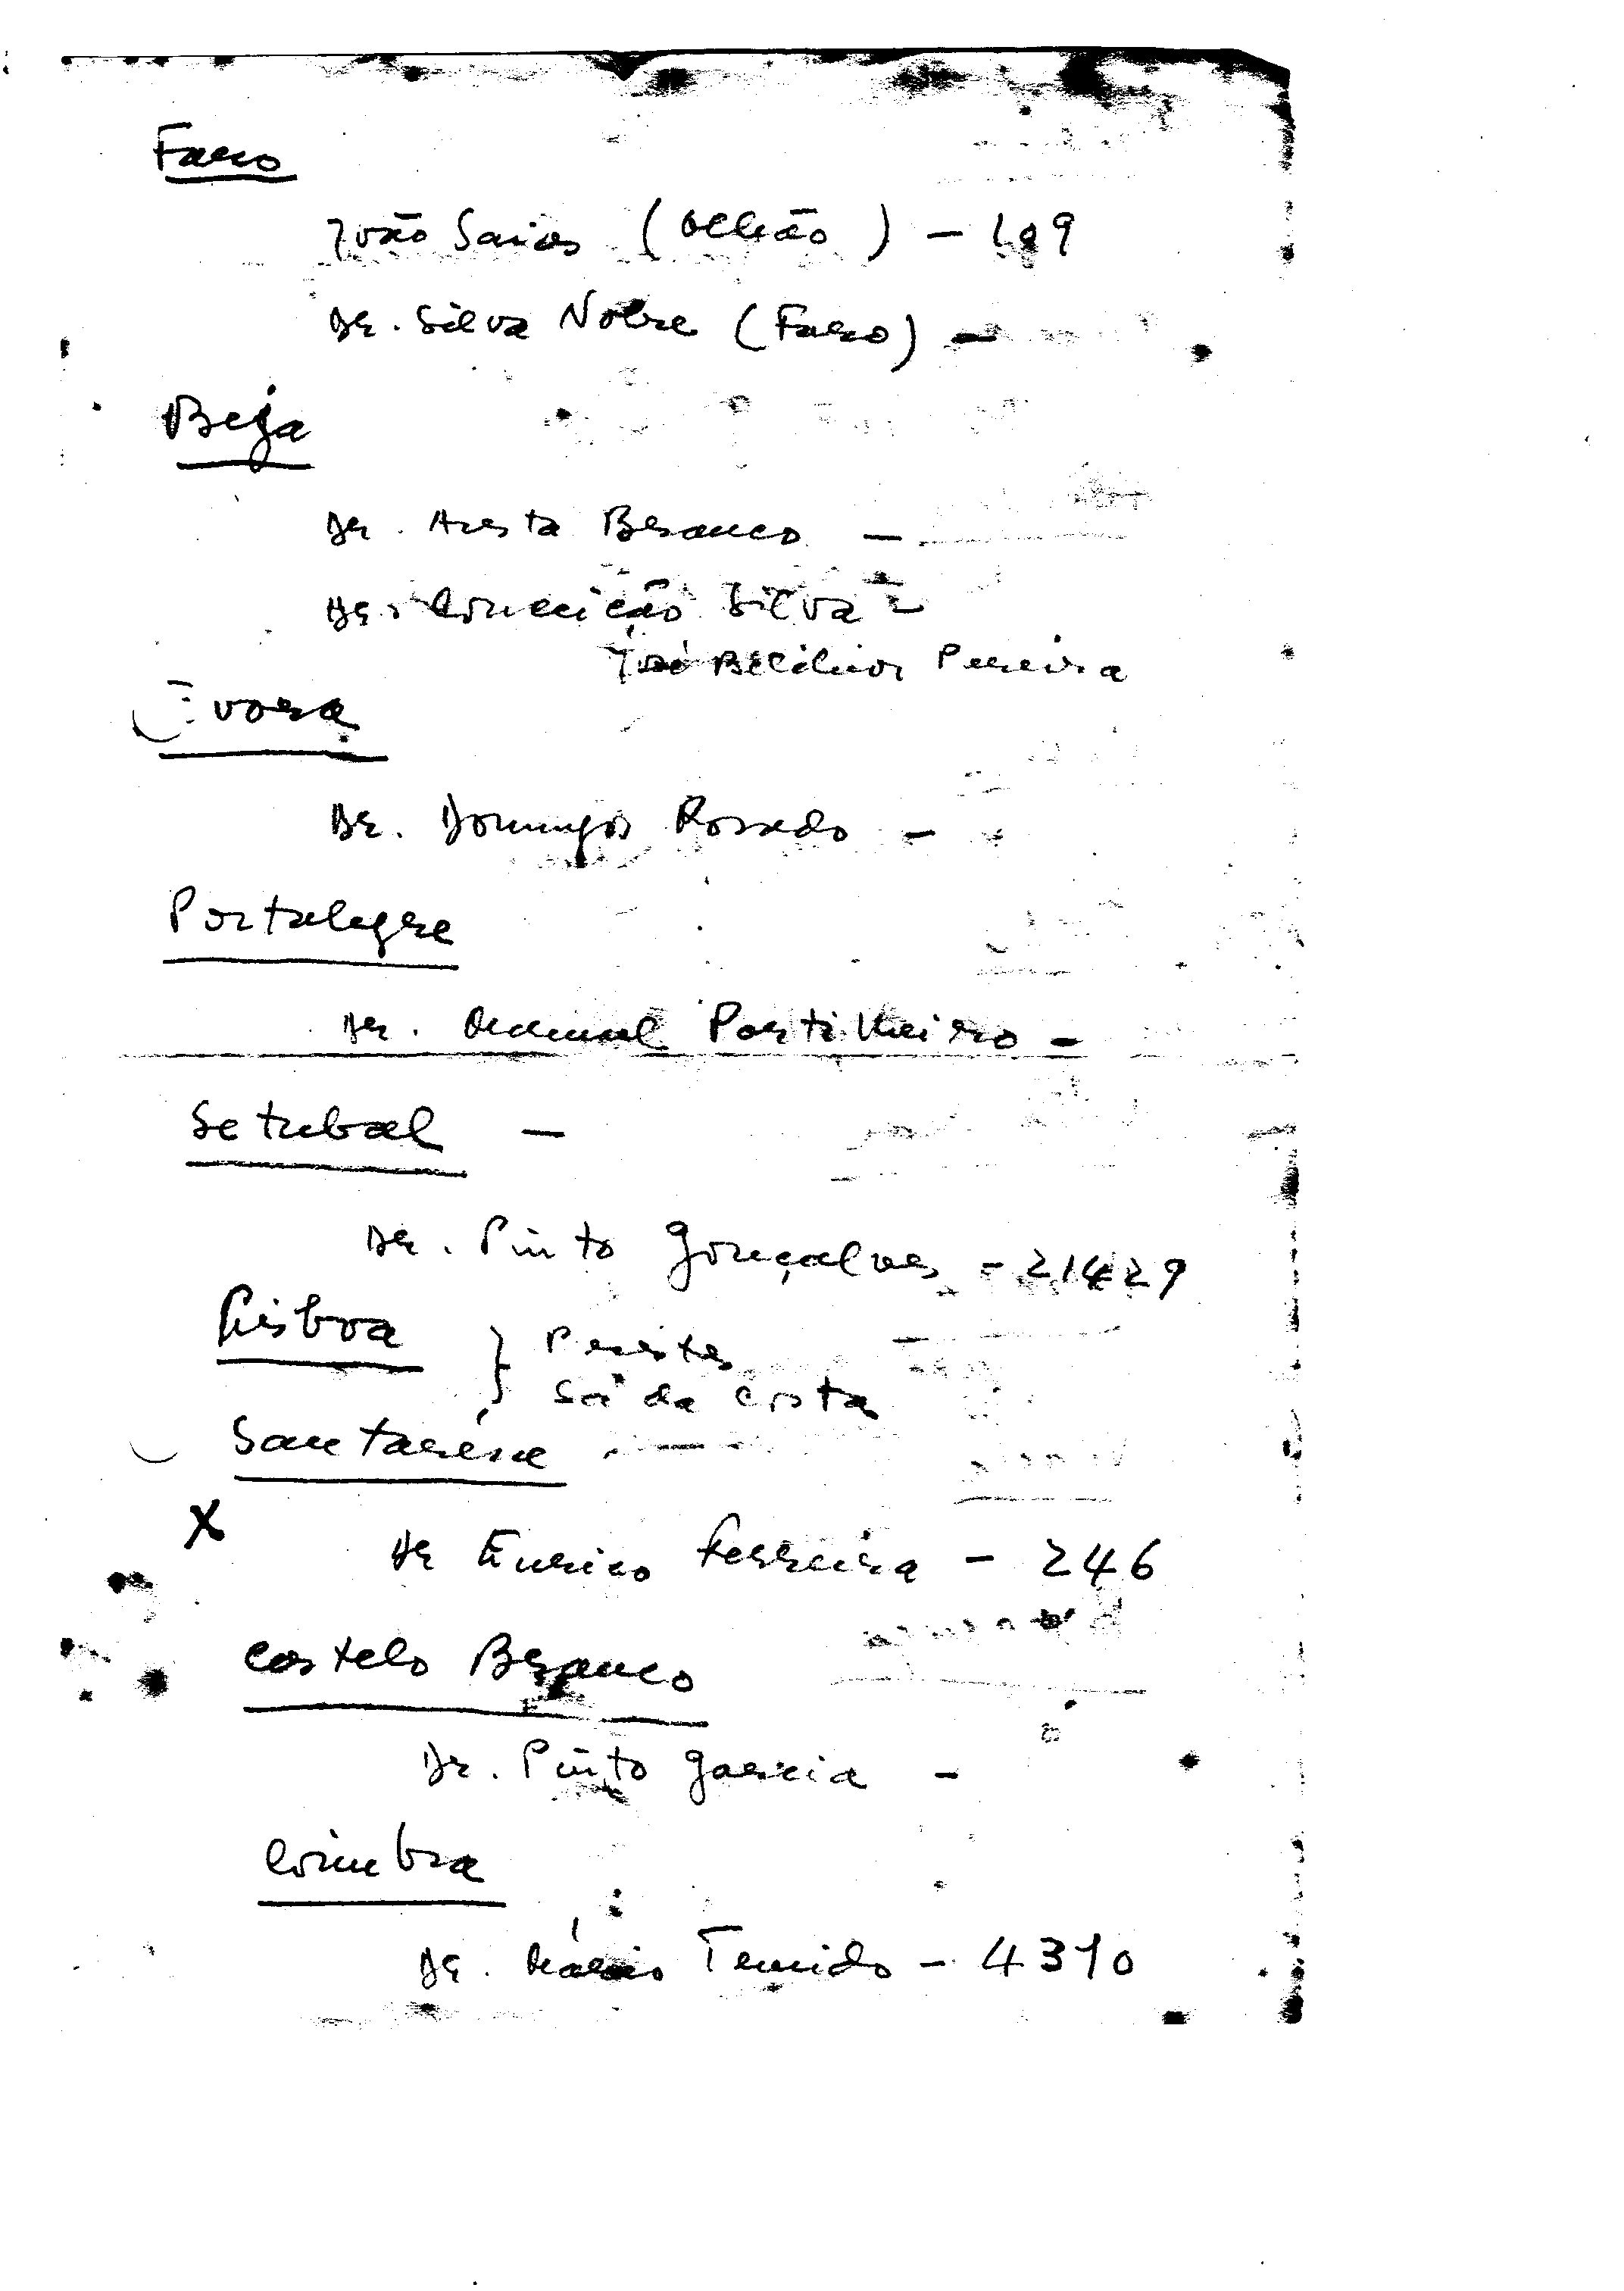 Faro
João Saias (Olhão) - 109
Dr. Silva Nobre (Faro) -
Beja
Dr. Aresta Branco -
Dr. Conceição Silva -
José Belchior Pereira
Évora
Dr. Domingos Rosado -
Portalegre
Dr. Portilheiro -
Setubal -
Dr. Pinto Gonçalves - 21429
Lisboa
} Prestes
Sá da Costa
Santarém -
X
Dr Eurico Ferreira - 246
Castelo Branco
Dr. Pinto Garcia -
Coimbra
Dr. Mário Temido - 4310